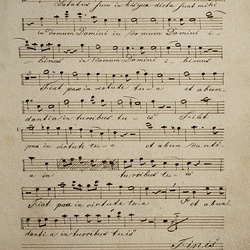 Laetatus sum in his quae dicta sunt mihi
in Domum Domini in Domum Domini i-
bimus in Domum Domini ibimus
Fiat pax in virtute tu-a et abun-
dantia in turribus tu-is Fiat
pax in virtute tu-a et abundanti-
a in turribus tuis
Fiat pax in virtute tu-a Et abun
danti a in turribus tuis
Finis